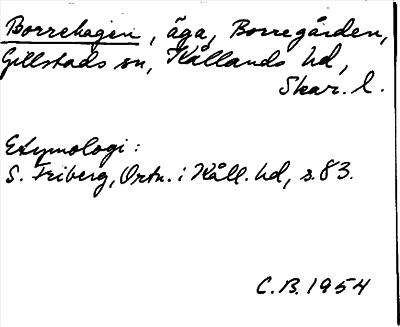 Borrehagen, äga, Borregården,
Gillstads sn, Kållands hd,
Skar. l.
Etymologi:
S. Friberg, Ortn. i Kåll. hd, s. 83.
C.B. 1954